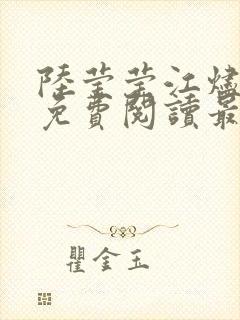 陸莹莹江燼
免費閱讀最
瞿金玉